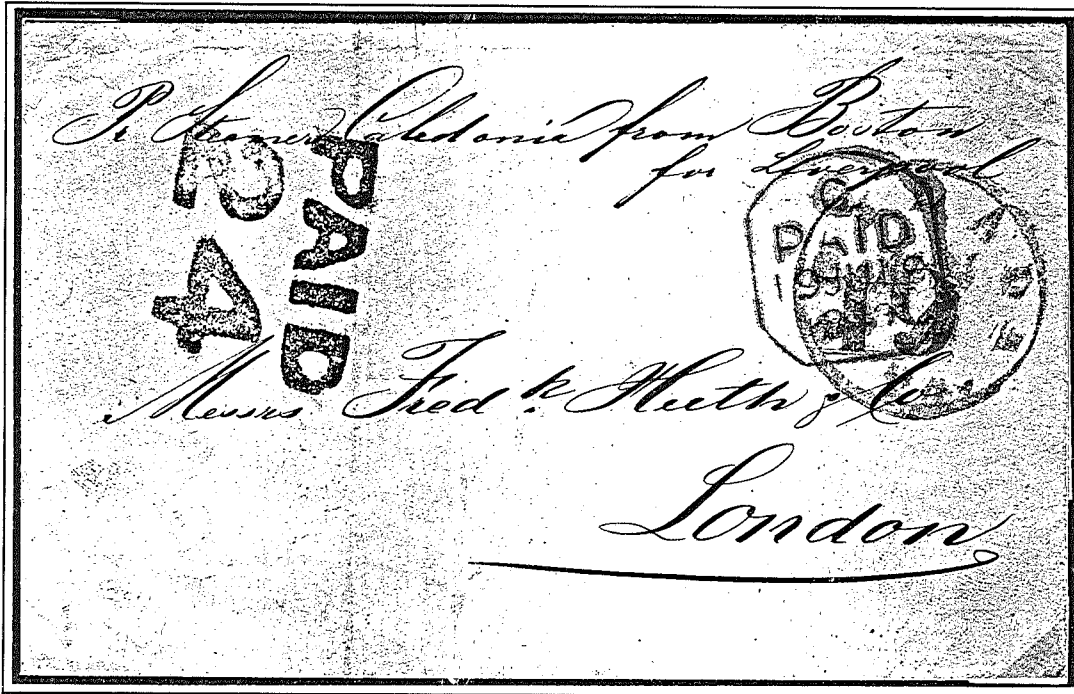 Pr Steamer Caledonia from Boston
for Liverpool
PAID
24
PAID
Messrs Fredk. Huth & Co
London